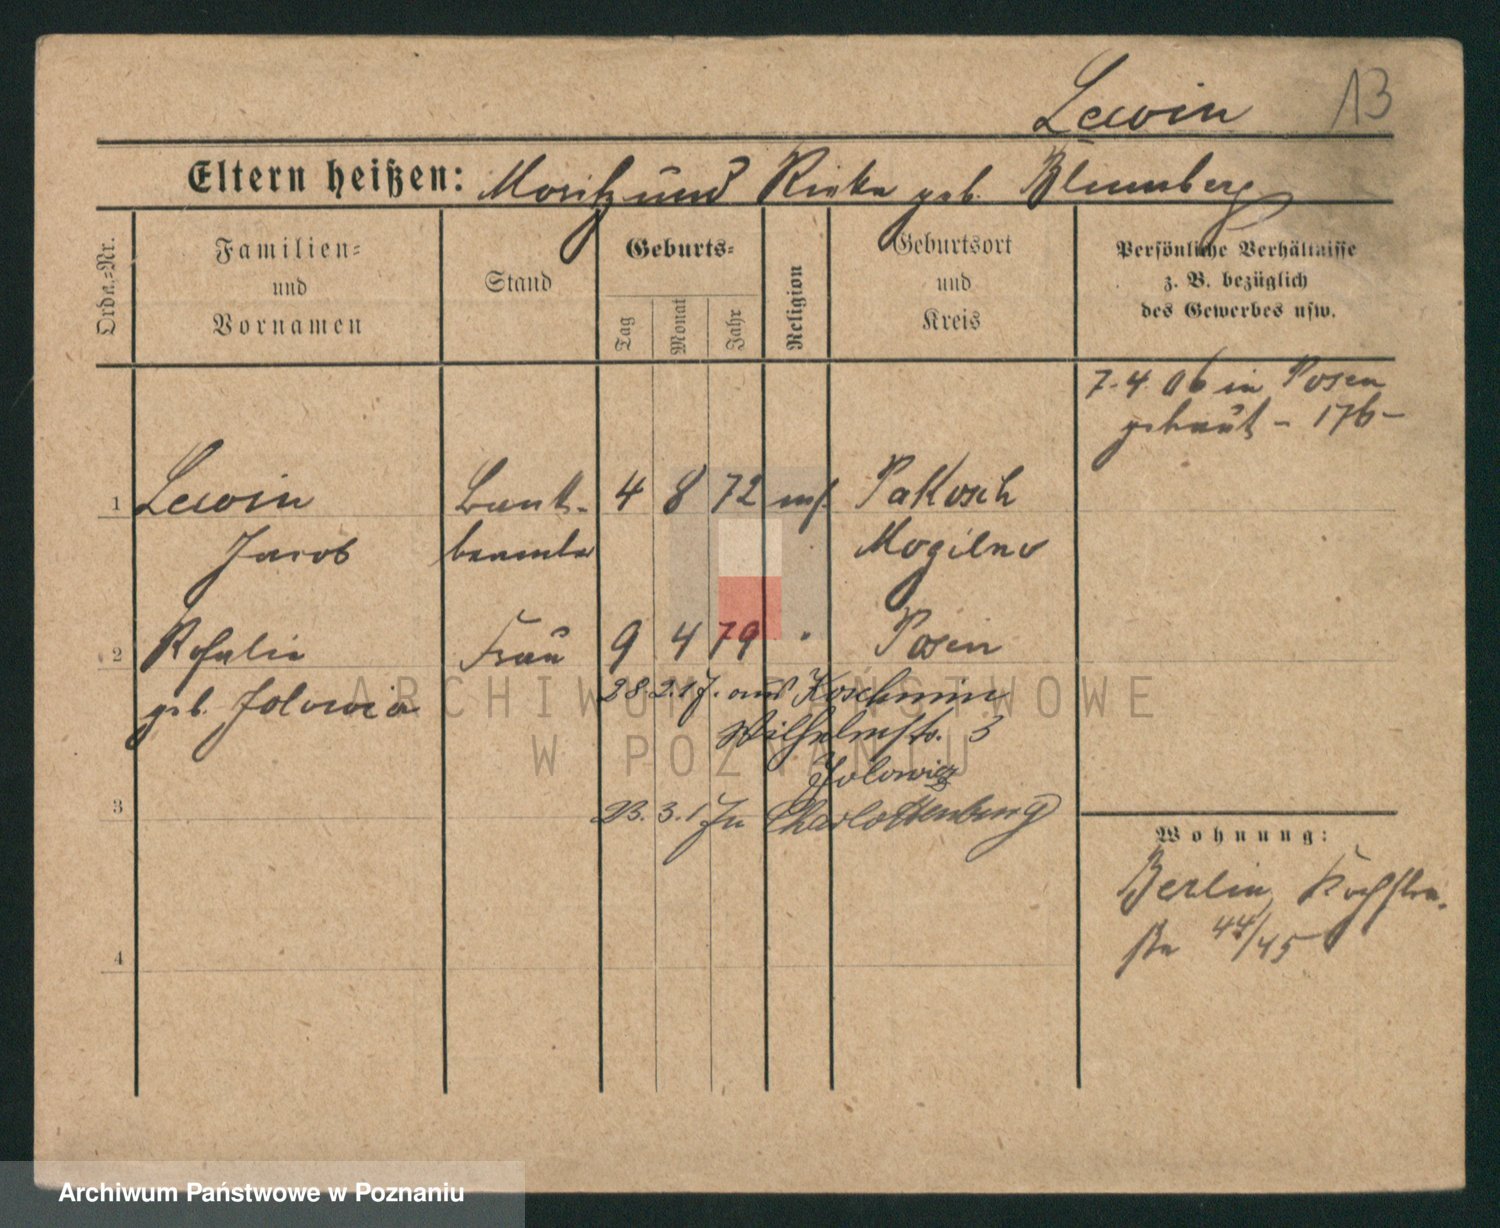 Lewin 13
Eltern heißen: Moritz und Rieke geb. Blumberg
Ordn.-Nr.
Familien-
und
Vornamen
Stand
Geburts-
Tag
Monat
Jahr
Religion
Geburtsort
und
Kreis
Persönliche Verhältnisse
z. B. bezüglich
des Gewerbes usw.
7. 4. 06 in Posen
getraut - 176 -
1 Lewin Bank- 4 8 72 mos. Pakosch
Jacob beamter Mogilno
2 Rosalie Frau 9 4 79 " Posen
geb. Jolowicz
28. 2. 17. aus Koschmin
Wilhelmstr. 3
Jolowicz
3
23. 3. 17 n Charlottenburg
4
Wohnung:
Berlin, Kochstra-
ße 44/45
ARCHIWUM PAŃSTWOWE
W POZNANIU
Archiwum Państwowe w Poznaniu